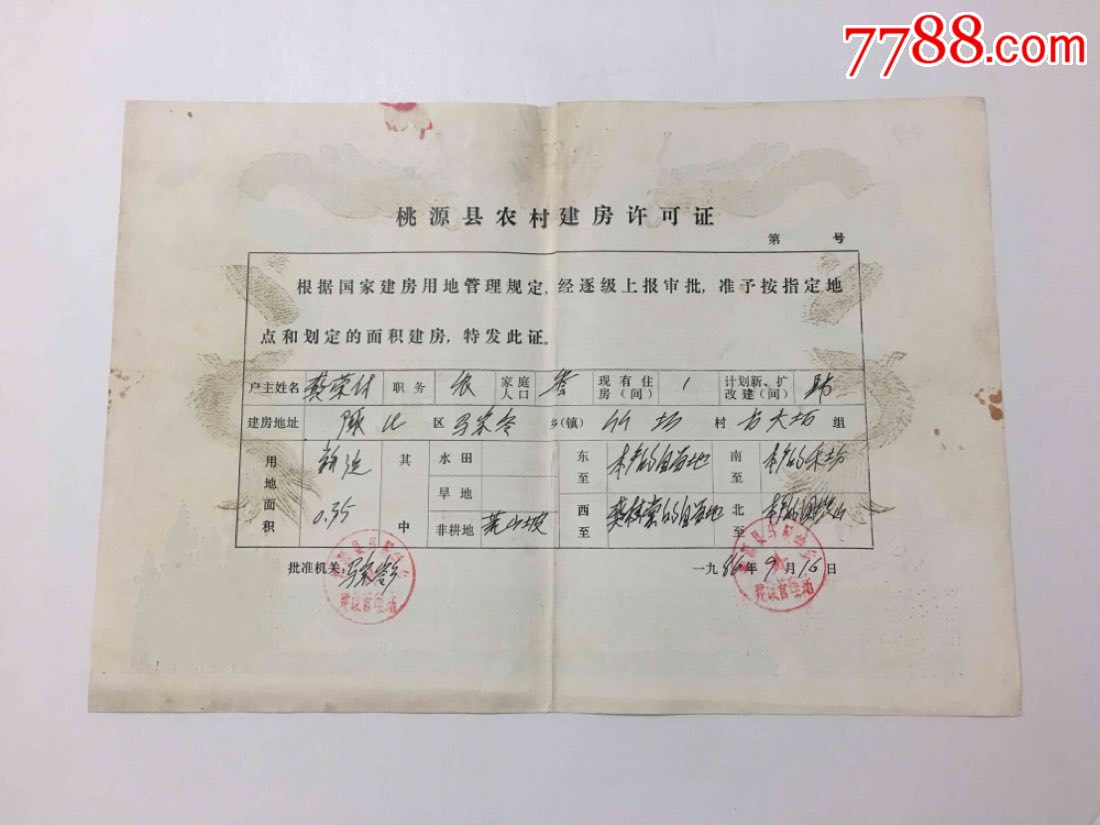 7788.com
桃源县农村建房许可证
第 号
根据国家建房用地管理规定，经逐级上报审批，准予按指定地
点和划定的面积建房，特发此证。
户主姓名 龚荣 职务 农 家庭人口 现有住房（间） 1 计划新、扩改建（间）
建房地址 陬 区 马家 乡（镇） 竹坊 村 方大坊 组
用地面积 0.35 其中 水田 旱地 非耕地 荒山坡
东至 本户的自留地 南至 本户的禾场
西至 的自留地 北至 本户的
批准机关：
一九86年9月16日
建设管理站
建设管理站